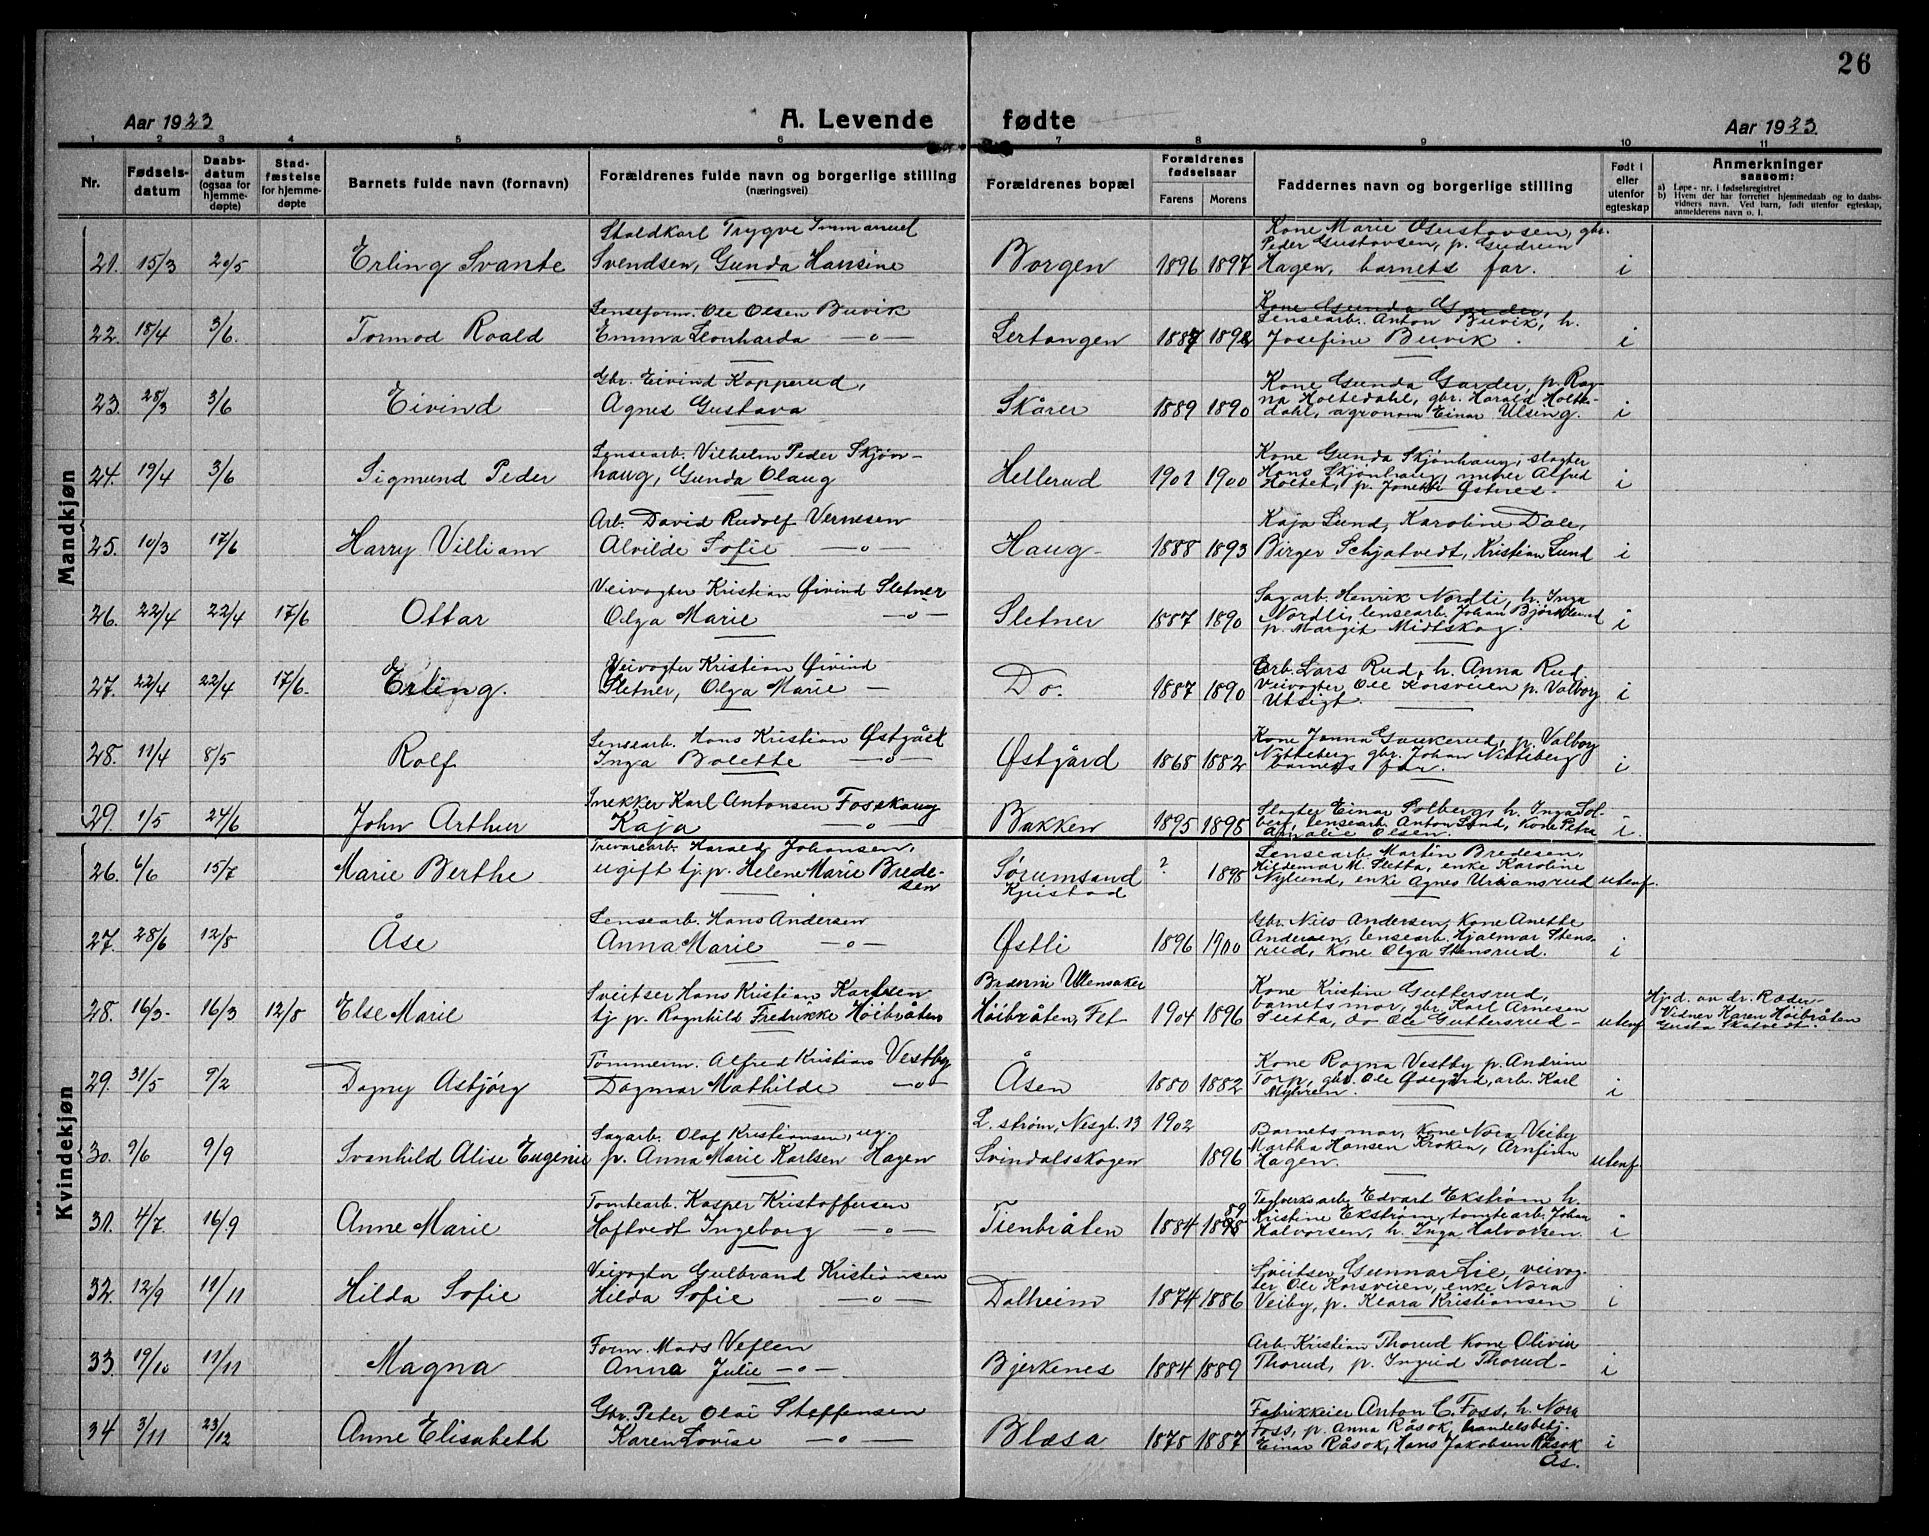 26
Aar 1923
A. Levende
fødte
Aar 1923
1 2 3 4 5 6 7 8 9 10 11
Nr.
Fødsels-
datum
Daabs-
datum
(ogsaa for
hjemme-
døpte)
Stad-
fæstelse
for hjemme-
døpte
Barnets fulde navn (fornavn)
Forældrenes fulde navn og borgerlige stilling
(næringsvei)
Forældrenes bopæl
Forældrenes
fødselsaar
Farens
Morens
Faddernes navn og borgerlige stilling
Født i
eller
utenfor
egteskap
Anmerkninger
saasom:
a) Løpe-nr. i fødselsregistret
b) Hvem der har forrettet hjemmedaab og to daabs-
vidners navn. Ved barn, født utenfor egteskap,
anmelderens navn o. l.
Mandkjøn
Staldkarl Trygve Immanuel
Kone Marie Gustavsen, gbr.
Peder Gustavsen, p. Gudrun
21. 15/3 20/5 Erling Svante Svendsen, Gunda Hansine Borgen 1896 1897 Hagen, barnets far. i
Lenseform. Ole Olsen Buvik
Kone Gunda Garder,
Lensearb. Anton Buvik, h.
22. 18/4 3/6. Tormod Roald Emma Leonharda —o— Lertangen 1887 1892 Josefine Buvik. i
Gbr. Eivind Kopperud,
Kone Gunda Garder, p. Rag-
na Holtedahl, gbr. Harald Holte-
23. 28/3 3/6 Eivind Agnes Gustava Skårer 1889 1890 dahl, agronom Einar Ulseng. i
Lensearb. Vilhelm Peder Skjøn-
Kone Gunda Skjønhaug, slagter
Hans Skjønhaug, murer Alfred
24. 19/4 3/6 Sigmund Peder haug, Gunda Olaug Hellerud 1901 1900 Holtet, p. Jonette Østnes. i
Arb. David Rudolf Vernesen
Kaja Lund, Karoline Dale,
25. 10/3 17/6 Harry Villiam Alvilde Sofie —o— Haug 1888 1893 Birger Schjatvedt, Kristian Lund i
Veivogter Kristian Øivind Sletner
Sagarb. Henrik Nordli, h. Inga
Nordli, lensearb. Johan Bjørklund
26. 22/4 22/4 17/6 Ottar Olga Marie —o— Sletner 1887 1890 p. Margit Midtskog. i
Veivogter Kristian Øivind
Arb. Lars Rud, h. Anna Rud
Veivogter Ole Korsveien p. Valborg
27. 22/4 22/4 17/6. Erling. Sletner, Olga Marie — Do. 1887 1890 Utsigt. i
Lensearb. Hans Kristian Østgård
Kone Janna Gaukerud, p. Valborg
Nitteberg gbr. Johan Nitteberg
28. 11/4 8/5 Rolf Inga Bolette —o— Østgård 1868 1882 barnets far. i
Snekker Karl Antonsen Fosskaug
Slagter Einar Solberg, h. Inga Sol-
berg, lensearb. Anton Lund, Kone Petra
29. 1/5 24/6 John Arthur Kaja —o— Bakken 1895 1895 Amalie Olsen. i.
Kvindekjøn
Trevarearb. Harald Johansen,
Lensearb. Martin Bredesen,
Hildemar M. Sletta, enke Karoline
26. 6/6 15/7 Marie Berthe ugift tj. p. Helene Marie Brede- Sørumsand ? 1895 Nylund, enke Agnes Uriansrud utenf.
sen
Lensearb. Hans Andersen
Gbr. Nils Andersen, Kone Anette
Andersen, lensearb. Hjalmar Stens-
27. 28/6 12/8 Åse Anna Marie —o— Østli 1896 1900 rud, Kone Olga Stensrud. i
Sveitser Hans Kristian Karlsen
Kone Kristine Guttersrud,
barnets mor, gbr. Karl Arnesen
28. 16/3 16/3 12/8 Else Marie tj. p. Ragnhild Fredrikke Höibråten Höibråten, Fet 1904 1896 Sletta, do Ole Guttersrud- utenf.
Hj. d. av dr. Ræder-
Vidner Karen Höibråten
Tømmerm. Alfred Kristians Vestby
Kone Ragna Vestby p. Andrine
Torp, gbr. Ole Ødegård, arb. Karl
29. 31/5 9/2 Dagny Asbjørg Dagmar Mathilde —o— Åsen 1880 1882 Myhren. i
L. strøm, Nesgt. 13 1902
Sagarb. Olaf Kristiansen, ug.
Barnets mor, Kone Nora Veiby
Martha Hansen Kroken, Arnfinn
30. 9/6 9/9 Svanhild Alise Eugenie p. Anna Marie Karlsen Hagen Svindalsskogen 1896 Hagen. utenf
Tomtearb. Kasper Kristoffersen
Teglverksarb. Edvart Ekstrøm h.
Kristine Ekstrøm, tomtearb. Johan
31. 4/7 16/9 Anne Marie Hoftvedt Ingeborg —o— Tienbråten 1884 1898 89 Halvorsen, h. Inga Halvorsen. i
Veivogter Gulbrand Kristiansen
Sveitser Gunnar Lie, veivog-
ter Ole Korsveien, enke Nora
32. 12/9 11/11 Hilda Sofie Hilda Sofie —o— Dalheim 1874 1886 Veiby, p. Klara Kristiansen i
Form. Mads Veflen
Arb. Kristian Thorud Kone Olivia
33. 19/10 11/11 Magna Anna Julie —o— Bjerkenes 1884 1889 Thorud, p. Ingrid Thorud- i
Gbr. Peter Olai Steffensen
Fabrikkeier Anton C. Foss, h. Nora
Foss, p. Anna Råsok, handelsbetj.
34 3/11 23/12 Anne Elisabeth Karen Lovise —o— Blæsa 1875 1887 Einar Råsok, Hans Jakobsen Råsok i
Ås.